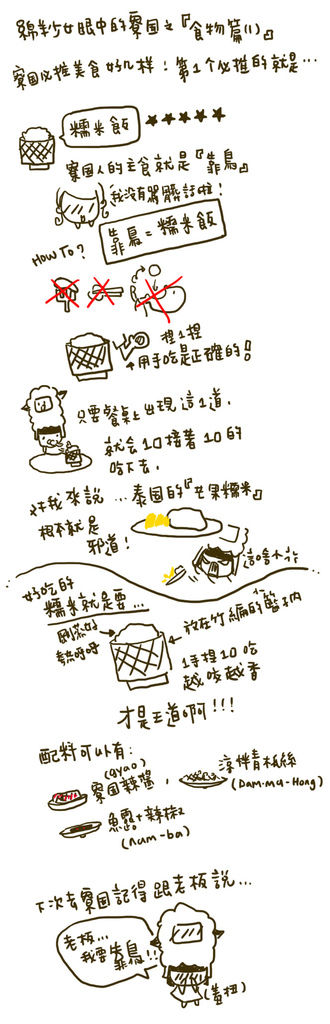 綿紗女眼中的寮国之『食物篇(1)』
寮国必推美食好几样！第1个必推的就是…
糯米飯 ★★★★★
寮国人的主食就是『靠鳥』
我没有講髒話啦！
靠鳥=糯米飯
HOW TO?
捏1捏
用手吃是正確的！
只要餐桌上出現這1道，
就会1口接著1口的
吃下去.
对我來說…泰国的『芒果糯米』
根本就是
邪道！
這啥小片
好吃的
糯米就是要…
剛蒸好
熱呼呼
放在竹編的簍子內
1手捏1口吃
越咬越香
才是王道啊!!!
配料可以有:
(gyao)
寮国辣醬,
涼拌青木瓜絲
(Dam-ma-Hong)
魚露+辣椒
(nam-ba)
下次去寮国記得跟老板說…
老板…
我要靠鳥!!
(羞扭)